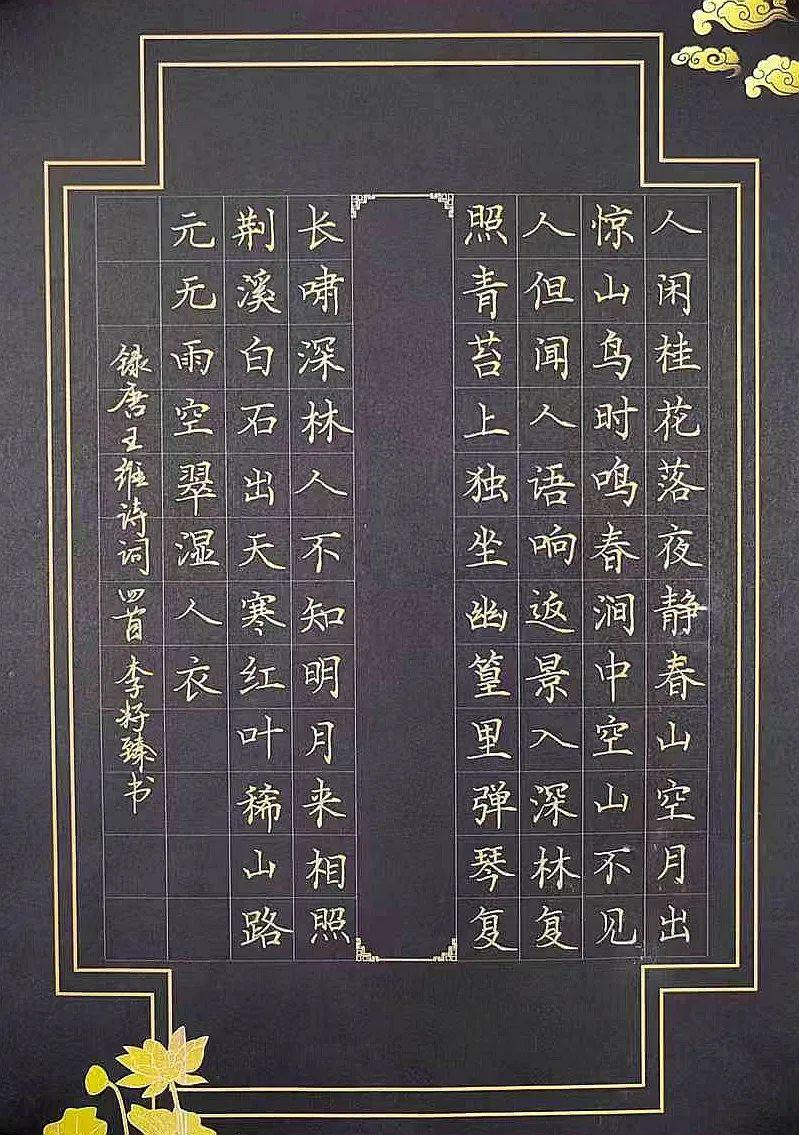 人闲桂花落夜静春山空月出
惊山鸟时鸣春涧中空山不见
人但闻人语响返景入深林复
照青苔上独坐幽篁里弹琴复
长啸深林人不知明月来相照
荆溪白石出天寒红叶稀山路
元无雨空翠湿人衣
录唐王维诗词四首李籽臻书